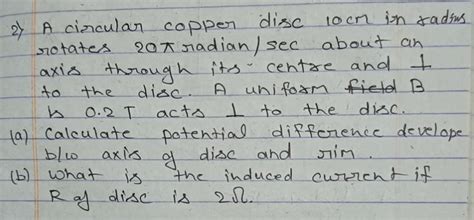 2) A circular copper disc 10cm in radius
rotates 20π radian/sec about an
axis through its centre and ⊥
to the disc. A uniform field B
is 0.2 T acts ⊥ to the disc.
(a) Calculate potential difference develope
b/w axis of disc and rim.
(b) what is the induced current if
R of disc is 2Ω.